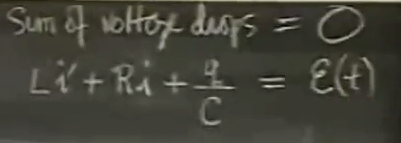 Sum of voltage drops = 0
Li' + Ri + q/C = ε(t)